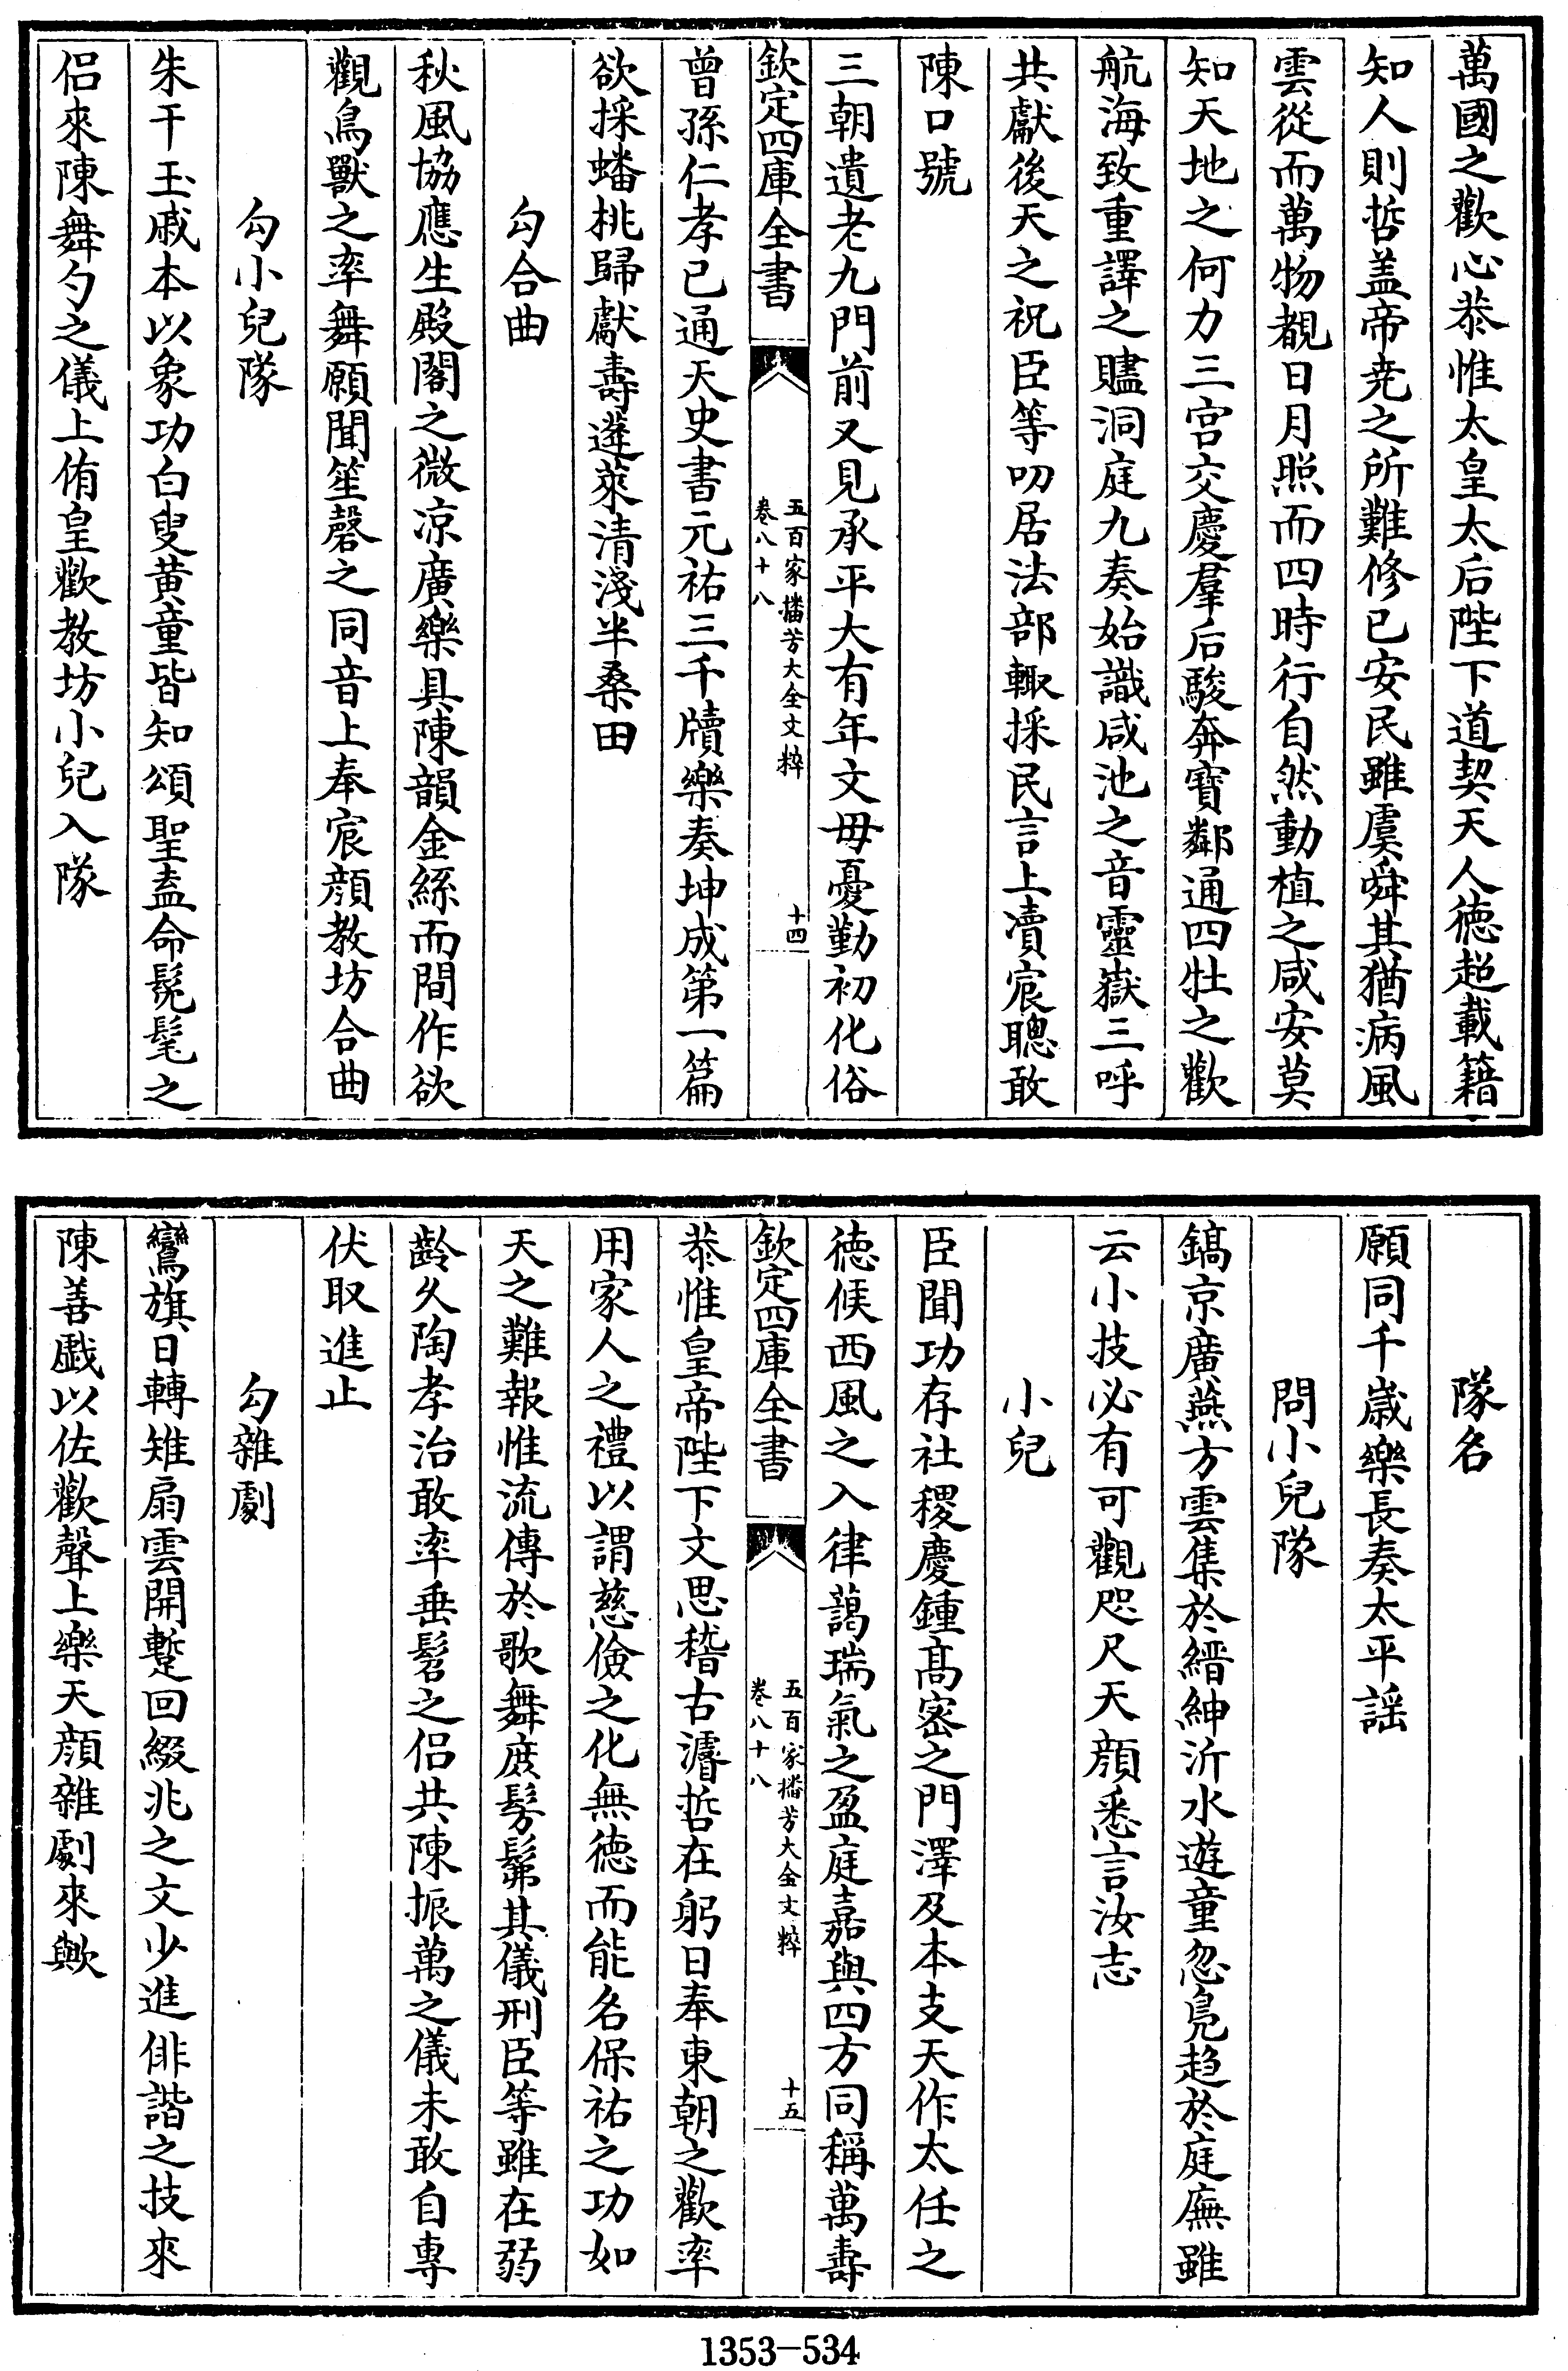 萬國之歡心恭惟太皇太后陛下道契天人德超載籍
知人則哲盖帝尭之所難修已安民雖虞舜其猶病風
雲從而萬物覩日月照而四時行自然動植之咸安莫
知天地之何力三宫交慶羣后駿奔寳鄰通四牡之歡
航海致重譯之賮洞庭九奏始識咸池之音靈嶽三呼
共獻後天之祝臣等叨居法部輙採民言上凟宸聰敢
陳口號
三朝遺老九門前又見承平大有年文母憂勤初化俗
欽定四庫全書
五百家播芳大全文粹
卷八十八
十四
曾孫仁孝已通天史書元祐三千牘樂奏坤成第一篇
欲採蟠桃歸獻壽蓬萊清淺半桑田
勾合曲
秋風協應生殿閣之微凉廣樂具陳韻金絲而間作欲
觀鳥獸之率舞願聞笙磬之同音上奉宸顔教坊合曲
勾小兒隊
朱干玉戚本以象功白叟黃童皆知頌聖盍命髧髦之
侣來陳舞勺之儀上侑皇歡教坊小兒入隊
隊名
願同千歲樂長奏太平謡
問小兒隊
鎬京廣燕方雲集於縉紳沂水遊童忽鳧趋於庭廡雖
云小技必有可觀咫尺天顔悉言汝志
小兒
臣聞功存社稷慶鍾髙宻之門澤及本支天作太任之
德候西風之入律藹瑞氣之盈庭嘉與四方同稱萬壽
欽定四庫全書
五百家播芳大全文粹
卷八十八
十五
恭惟皇帝陛下文思稽古濬哲在躬日奉東朝之歡率
用家人之禮以謂慈儉之化無德而能名保祐之功如
天之難報惟流傳於歌舞庶髣髴其儀刑臣等雖在弱
齡久陶孝治敢率垂髫之侣共陳振萬之儀未敢自專
伏取進止
勾雜劇
鸞旗日轉雉扇雲開蹔回綴兆之文少進俳諧之技來
陳善戯以佐歡聲上樂天顔雜劇來歟
1353-534